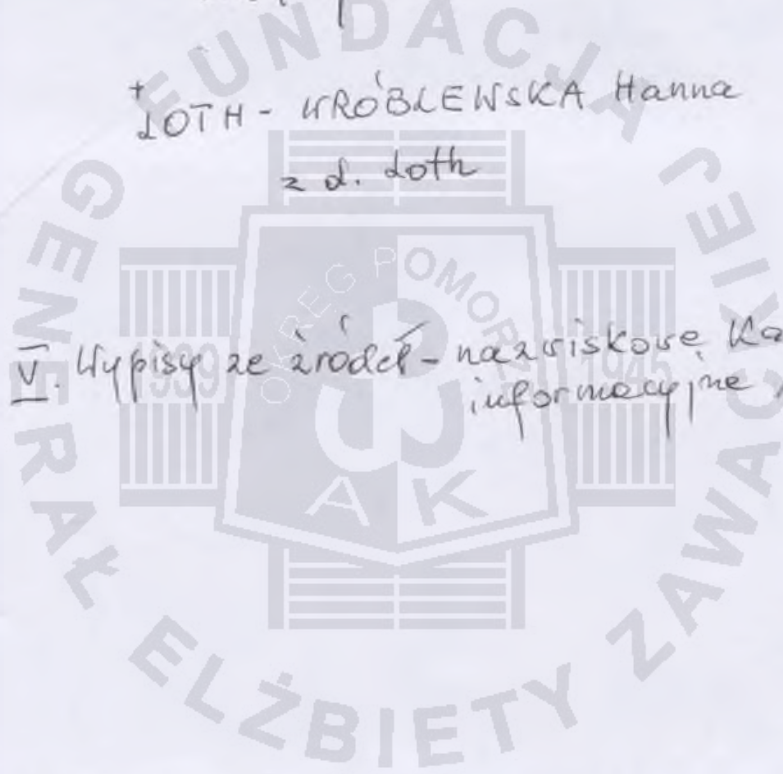 +
LOTH - WRÓBLEWSKA Hanna
z d. Loth
V. Wypisy ze źródeł - nazwiskowe Ka
informacyjne
FUNDACJA GENERAŁ ELŻBIETY ZAWACKIEJ
OKRĘG POMORZE
1939
1945
AK